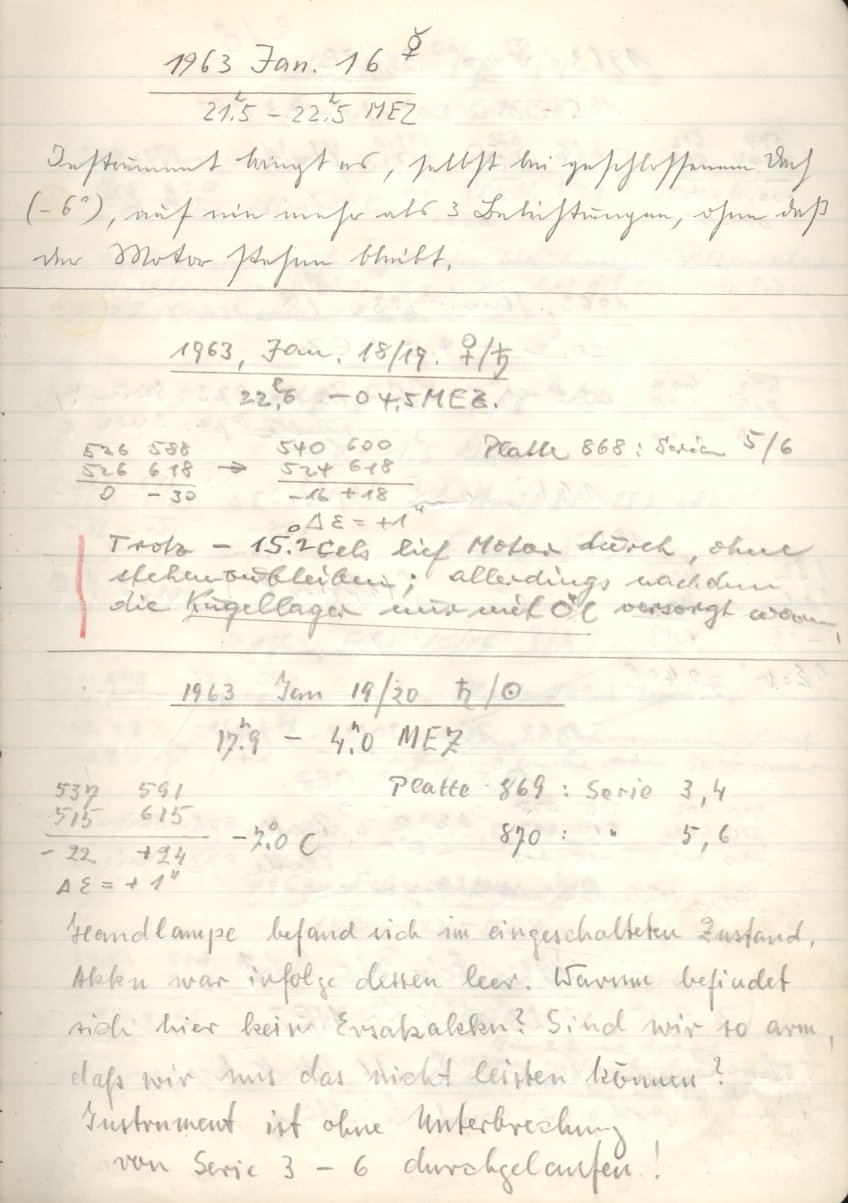 1963 Jan. 16 ☿
21ʰ.5 – 22ʰ.5 MEZ
Instrument bringt es, selbst bei geschlossenem Dach
(-6°), auf nie mehr als 3 Belichtungen, ohne daß
der Motor stehen bleibt.
1963, Jan. 18/19. ♀/♄
22.6 – 04.5 MEZ.
526 588 540 600 Platte 868: Serien 5/6
526 618 → 524 618
0 -30 -16 +18
Δε = +1"
Trotz – 15.°2 Cels lief Motor durch, ohne
stehenzubleiben; allerdings nachdem
die Kugellager nur mit Öl versorgt waren.
1963 Jan 19/20 ♄/☉
17ʰ.9 – 4ʰ.0 MEZ
537 591 Platte 869: Serie 3,4
515 615 -7.°0 C 870: " 5,6
-22 +24
Δε = +1"
Handlampe befand sich im eingeschalteten Zustand,
Akku war infolge dessen leer. Warum befindet
sich hier kein Ersatzakku? Sind wir so arm,
daß wir uns das nicht leisten können?
Instrument ist ohne Unterbrechung
von Serie 3 – 6 durchgelaufen!